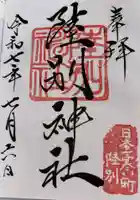 奉拝
陸別神社
令和七年七月六日
日本一寒い町
陸別